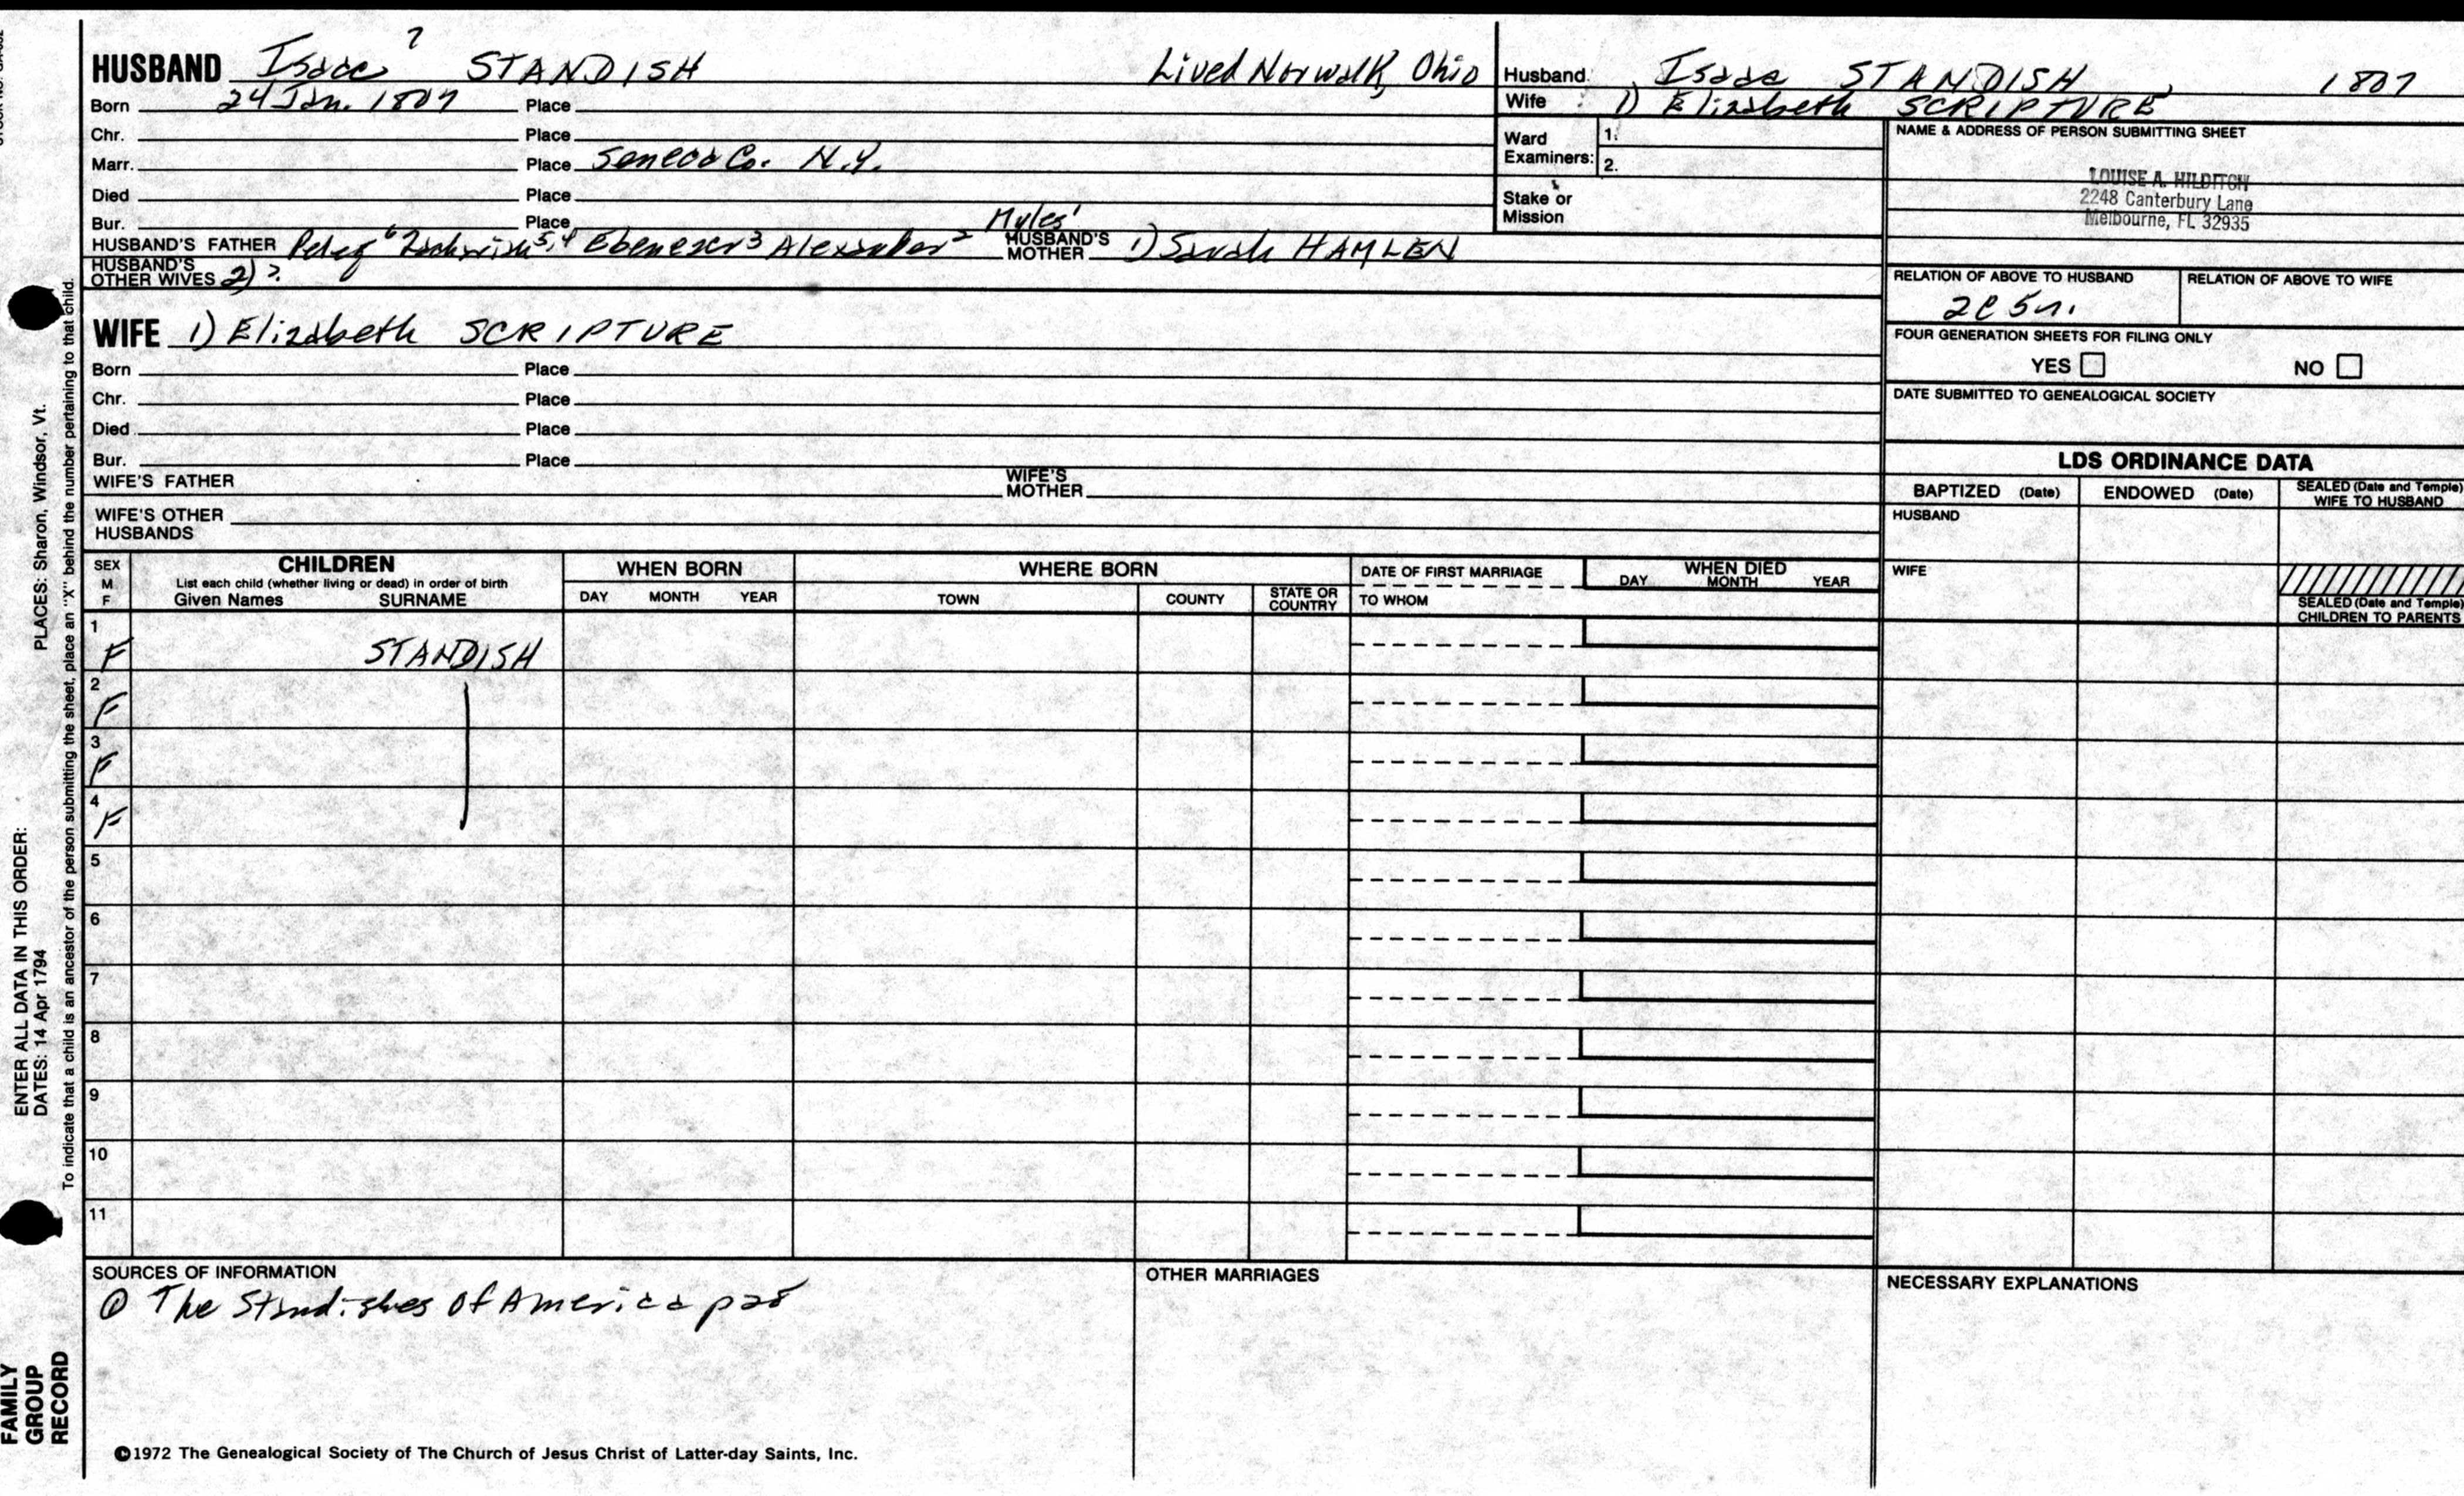 HUSBAND Isaac 7 STANDISH Lived Norwalk, Ohio
Born 24 Jan. 1807 Place
Chr. Place
Marr. Place Seneca Co. N.Y.
Died Place
Bur. Place
HUSBAND'S FATHER Peleg 6 Zachariah 5,4 Ebenezer 3 Alexander 2 Myles 1 HUSBAND'S MOTHER 1) Sarah HAMLEN
HUSBAND'S OTHER WIVES 2) ?
WIFE 1) Elizabeth SCRIPTURE
Born Place
Chr. Place
Died Place
Bur. Place
WIFE'S FATHER WIFE'S MOTHER
WIFE'S OTHER HUSBANDS
Husband Isaac STANDISH, 1807
Wife 1) Elizabeth SCRIPTURE
Ward Examiners: 1.
2.
Stake or Mission
NAME & ADDRESS OF PERSON SUBMITTING SHEET
LOUISE A. HILDITCH
2248 Canterbury Lane
Melbourne, FL 32935
RELATION OF ABOVE TO HUSBAND RELATION OF ABOVE TO WIFE
2C 5r.
FOUR GENERATION SHEETS FOR FILING ONLY
YES NO
DATE SUBMITTED TO GENEALOGICAL SOCIETY
LDS ORDINANCE DATA
BAPTIZED (Date) ENDOWED (Date) SEALED (Date and Temple) WIFE TO HUSBAND
HUSBAND
WIFE
SEALED (Date and Temple) CHILDREN TO PARENTS
SEX M F
CHILDREN
List each child (whether living or dead) in order of birth
Given Names SURNAME
WHEN BORN
DAY MONTH YEAR
WHERE BORN
TOWN COUNTY STATE OR COUNTRY
DATE OF FIRST MARRIAGE
TO WHOM
WHEN DIED
DAY MONTH YEAR
1
F STANDISH
2
F
3
F
4
F
5
6
7
8
9
10
11
SOURCES OF INFORMATION
① The Standishes Of America p28
OTHER MARRIAGES
NECESSARY EXPLANATIONS
©1972 The Genealogical Society of The Church of Jesus Christ of Latter-day Saints, Inc.
ENTER ALL DATA IN THIS ORDER:
DATES: 14 Apr 1794 PLACES: Sharon, Windsor, Vt.
To indicate that a child is an ancestor of the person submitting the sheet, place an "X" behind the number pertaining to that child.
FAMILY
GROUP
RECORD